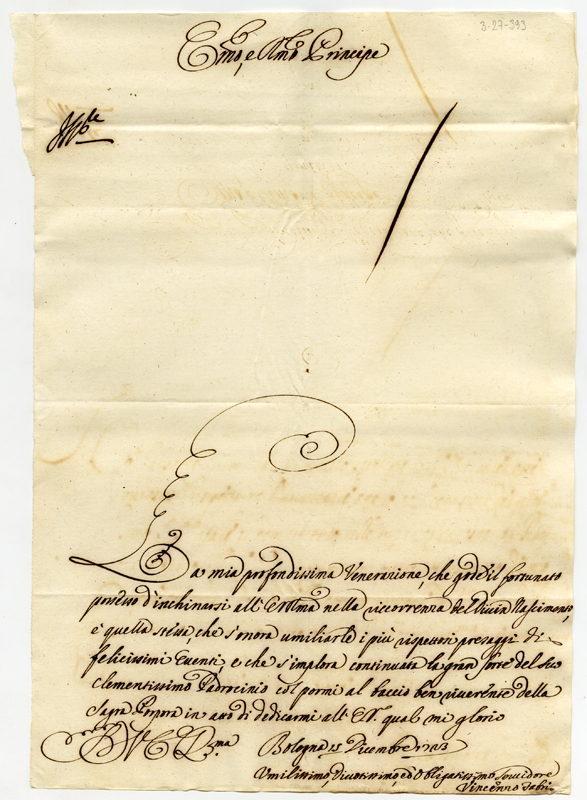 3-27-393
Emo, e Rmo Principe
La mia profondissima Venerazione, che gode il fortunato
possesso d'inchinarsi all'Emza Vra nella ricorrenza del Divin Nascimento,
è quella stessa, che s'onora umiliarle i più rispettosi presaggi di
felicissimi Eventi, e che s'implora continuata la gran sorte del suo
Clementissimo Padrocinio col pormi al baccio ben riverente della
Sagra Porpora in atto di dedicarmi all'E.V. qual mi glorio
Di V. E. Rma
Bologna Dicembre 1703
Umilissimo, Divotissimo, ed Obligatissimo Servidore
Vincenzo Fabri